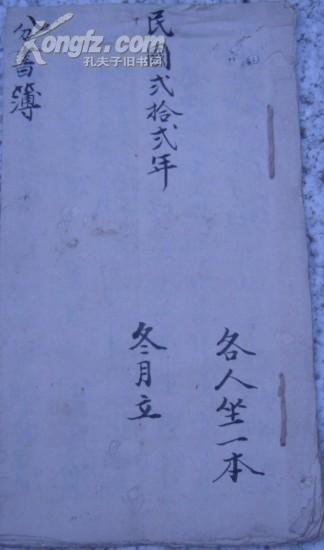 各人坐一本
民國弍拾弍年
冬月立
分書簿
Kongfz.com
孔夫子旧书网